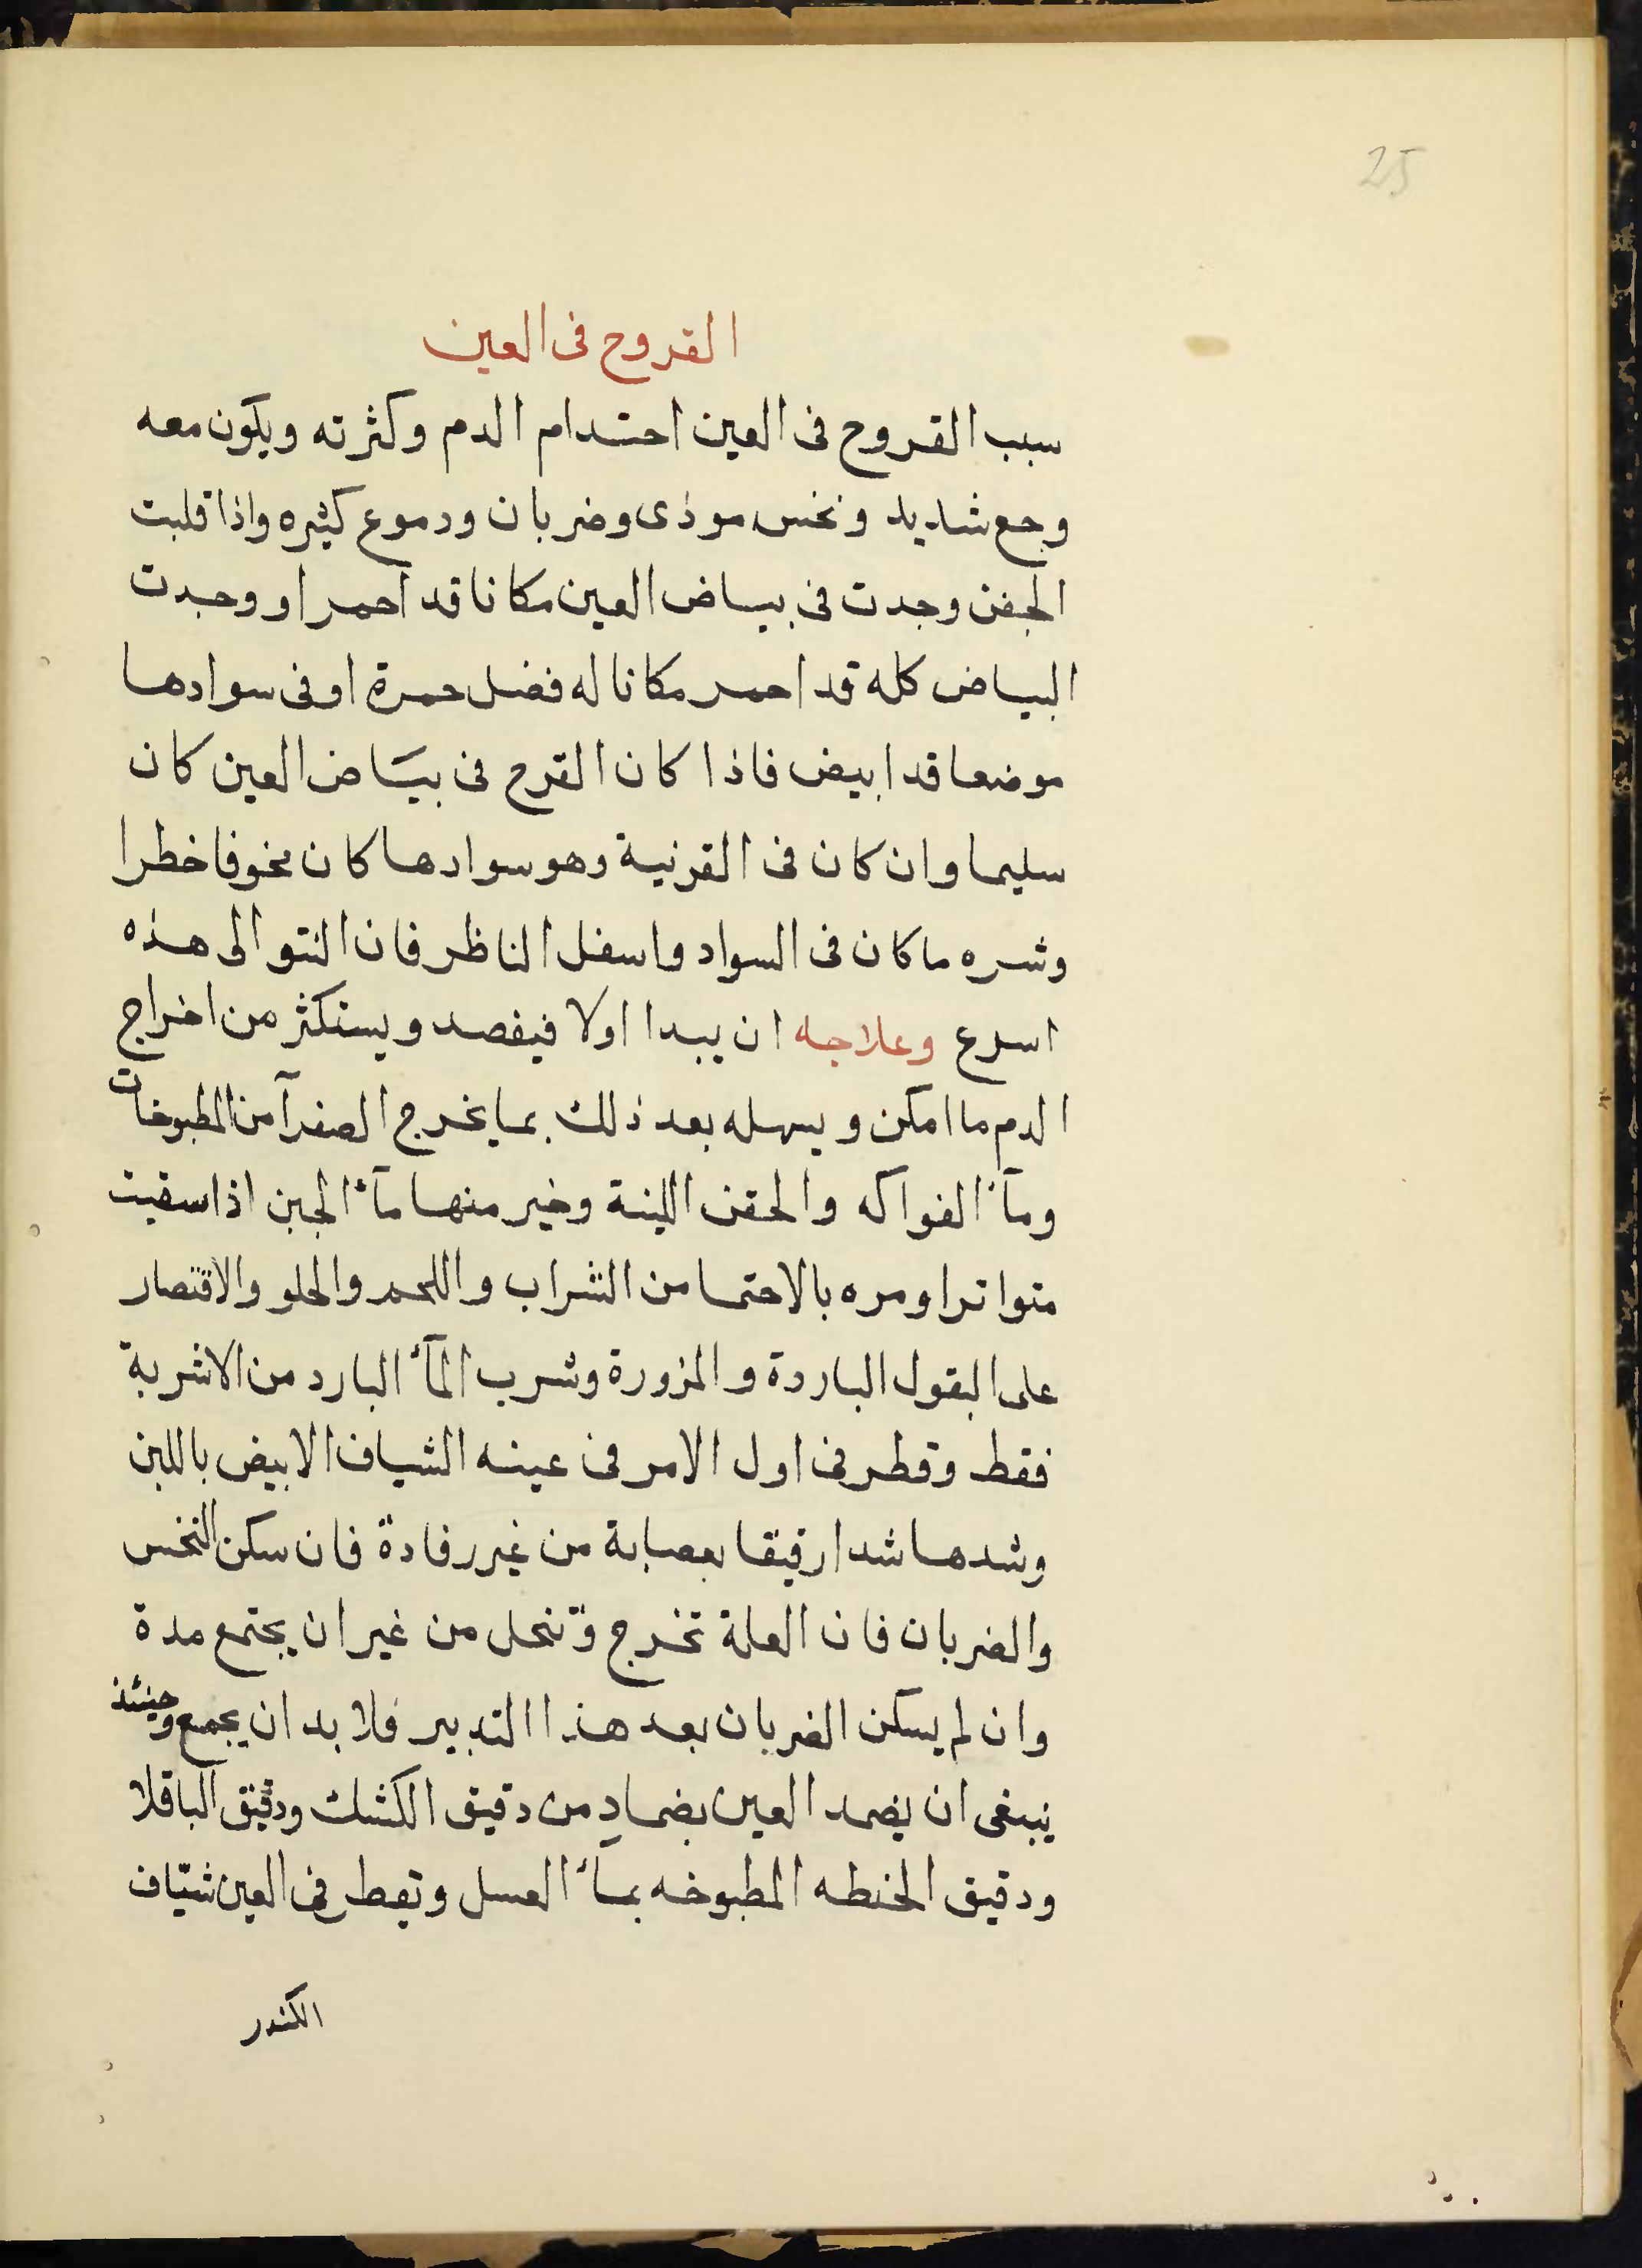 25
القروح فى العين
سبب القروح فى العين احتدام الدم وكثرته ويكون معه
وجع شديد ونخس موذى وضربان ودموع كثيره واذا قلبت
الجفن وجدت فى بياض العين مكانا قد احمر او وجدت
البياض كله قد احمر مكانا له فضل حمرة او فى سوادها
موضعا قد ابيض فاذا كان القرح فى بياض العين كان
سليما وان كان فى القرنية وهو سوادها كان مخوفا خطرا
وشره ما كان فى السواد واسفل الناظر فان النتو الى هذه
اسرع وعلاجه ان يبدا اولا فيفصد ويستكثر من اخراج
الدم ما امكن ويسهله بعد ذلك بما يخرج الصفرآ من المطبوخات
ومآء الفواكه والحقن اللينة وخير منها مآء الجبن اذا سقيت
متواترا ومره بالاحتما من الشراب واللحم والحلو والاقتصار
على البقول الباردة والمزورة وشرب المآء البارد من الاشربة
فقط وقطر فى اول الامر فى عينه الشياف الابيض باللبن
وشدها شدا رقيقا بعصابة من غير رفادة فان سكن النخس
والضربان فان العلة تخرج وتنحل من غير ان يجتمع مدة
وان لم يسكن الضربان بعد هذا التدبير فلا بد ان يجمع وحينئذ
ينبغى ان يضمد العين بضمادٍ من دقيق الكشك ودقيق الباقلا
ودقيق الحنطه المطبوخه بمآء العسل وتقطر فى العين شيّاف
الكندر